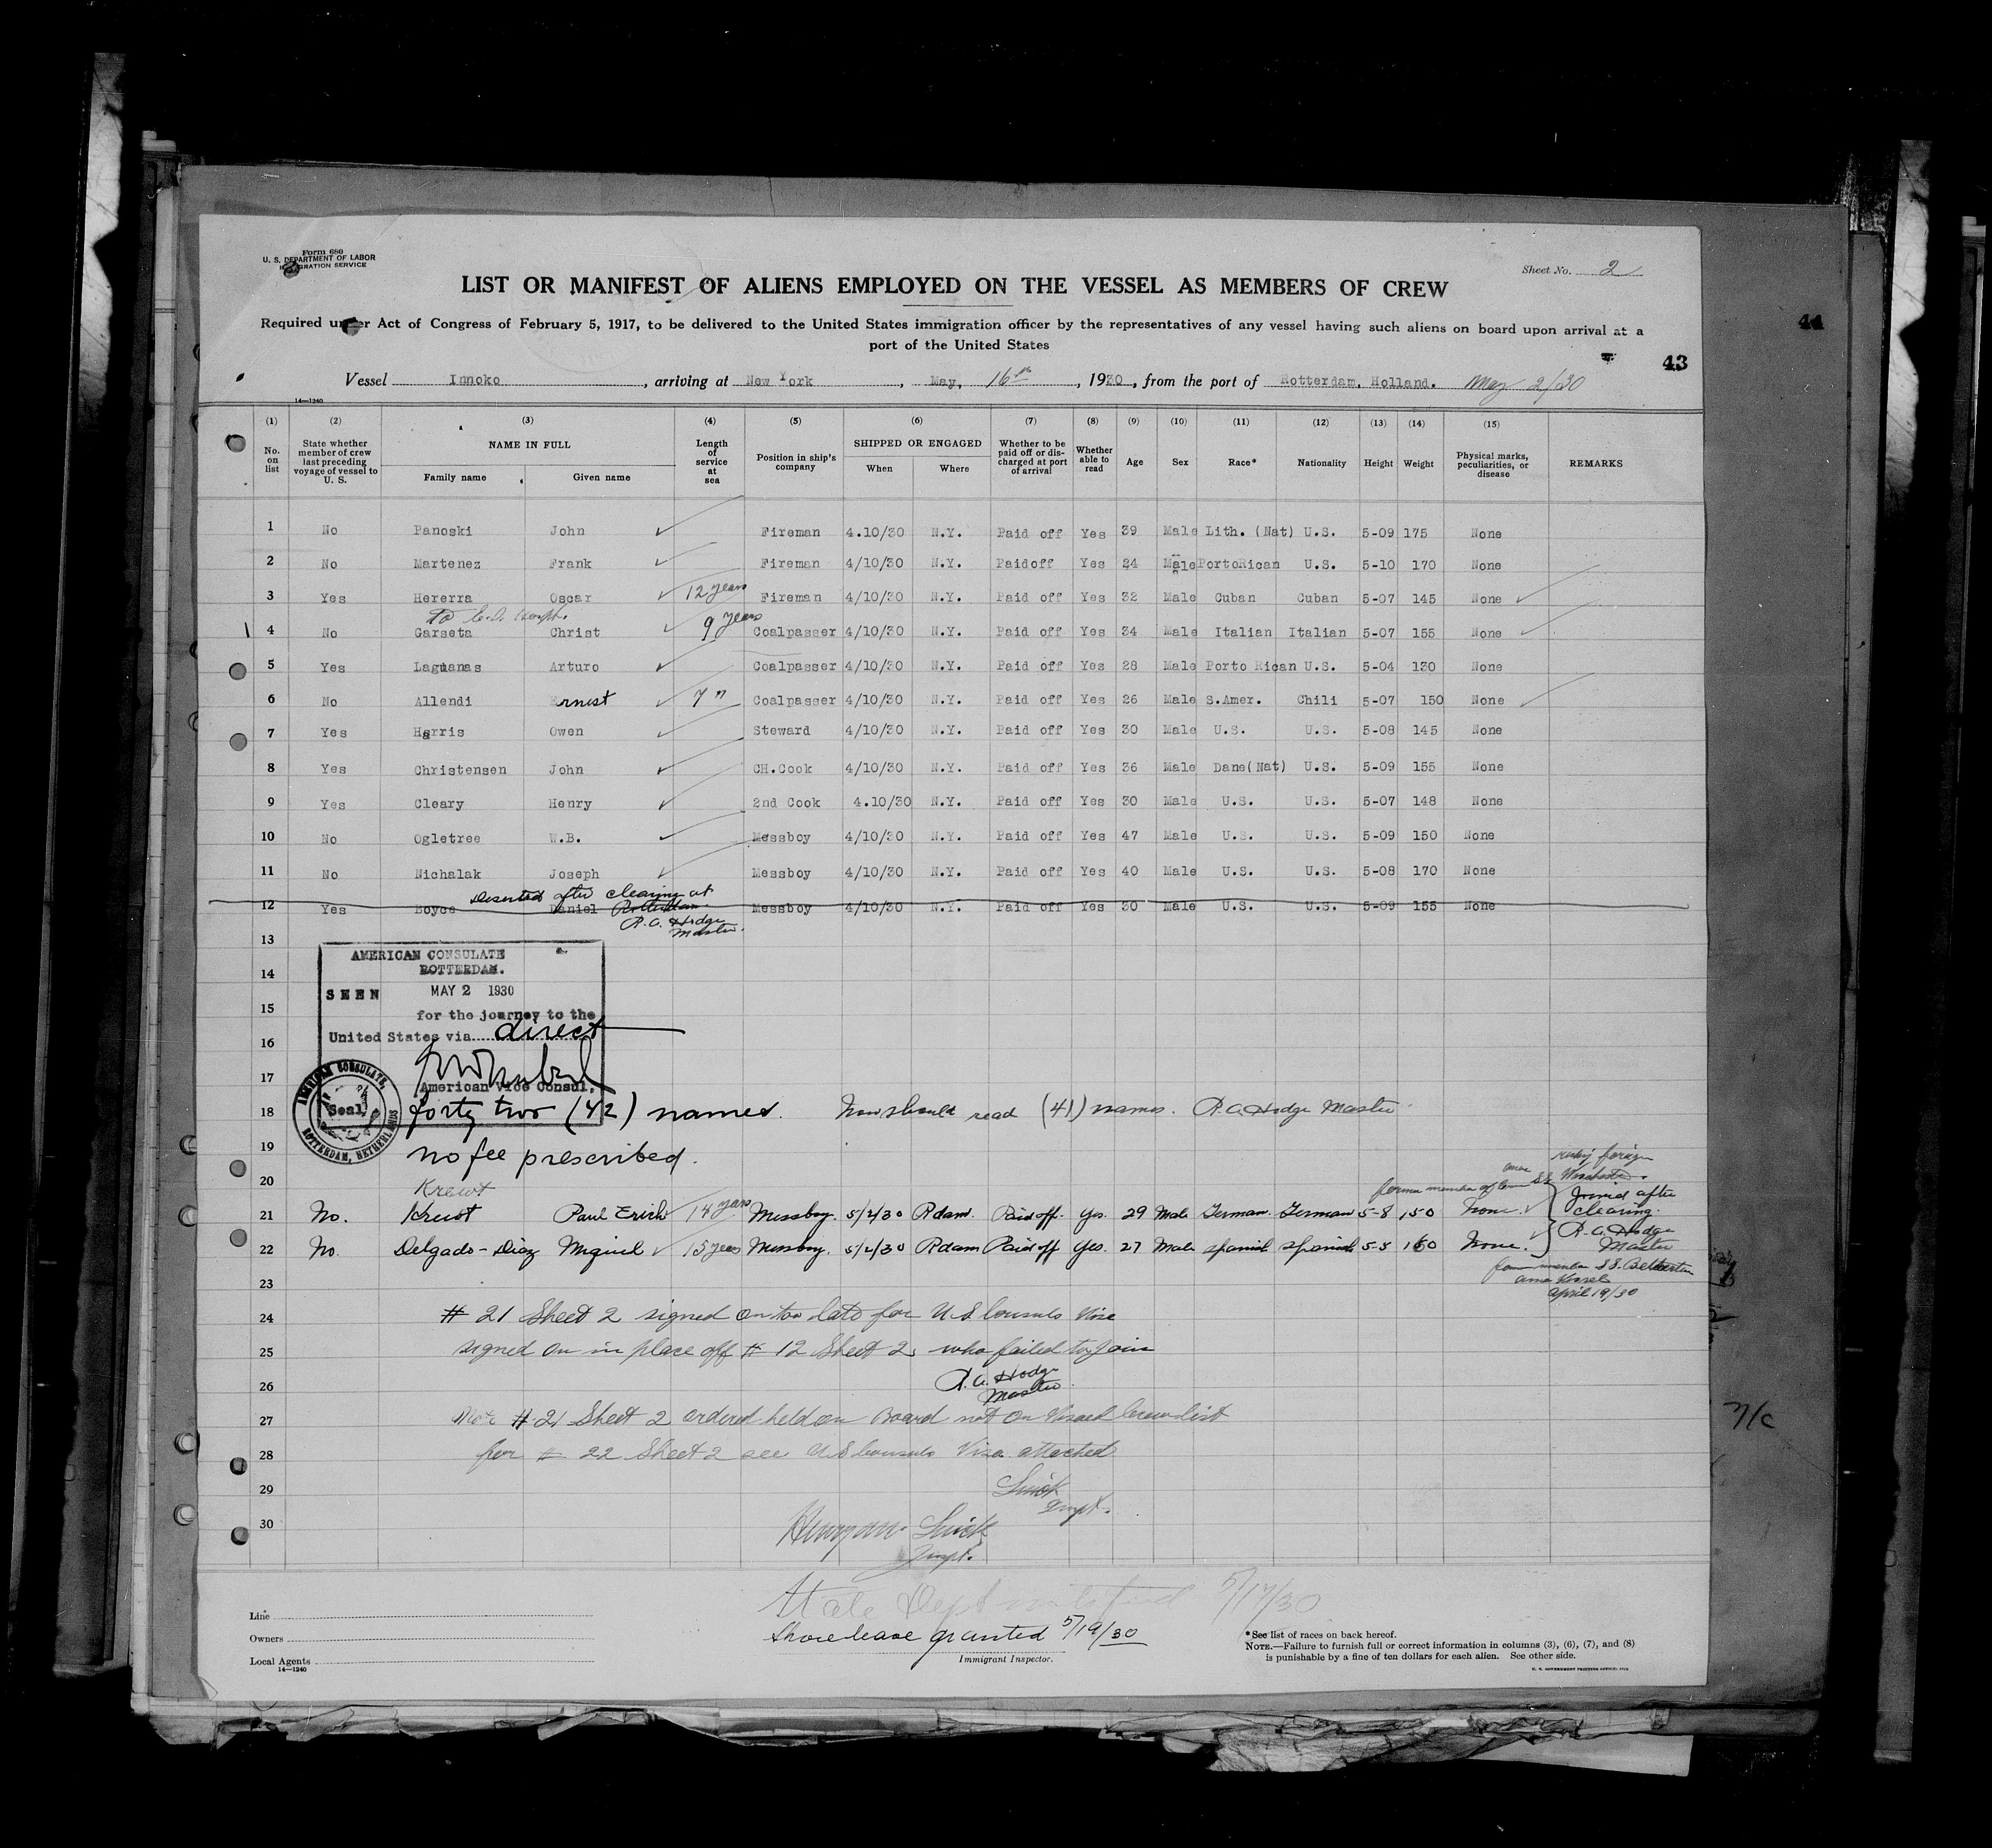 Form 680
U. S. DEPARTMENT OF LABOR
IMMIGRATION SERVICE
Sheet No. 2
LIST OR MANIFEST OF ALIENS EMPLOYED ON THE VESSEL AS MEMBERS OF CREW
Required under Act of Congress of February 5, 1917, to be delivered to the United States immigration officer by the representatives of any vessel having such aliens on board upon arrival at a
port of the United States
44
43
Vessel Innoko, arriving at New York, May, 16th, 1930, from the port of Rotterdam, Holland. May 2/30
14—1240
(1) (2) (3) (4) (5) (6) (7) (8) (9) (10) (11) (12) (13) (14) (15)
No. on list
State whether member of crew last preceding voyage of vessel to U. S.
NAME IN FULL
Family name
Given name
Length of service at sea
Position in ship's company
SHIPPED OR ENGAGED
When
Where
Whether to be paid off or discharged at port of arrival
Whether able to read
Age
Sex
Race*
Nationality
Height
Weight
Physical marks, peculiarities, or disease
REMARKS
1 No Panoski John Fireman 4.10/30 N.Y. Paid off Yes 39 Male Lith. (Nat) U.S. 5-09 175 None
2 No Martenez Frank Fireman 4/10/30 N.Y. Paidoff Yes 24 Male PortoRican U.S. 5-10 170 None
3 Yes Hererra Oscar 12 years Fireman 4/10/30 N.Y. Paid off Yes 32 Male Cuban Cuban 5-07 145 None
4 No Garseta Christ 9 years Coalpasser 4/10/30 N.Y. Paid off Yes 34 Male Italian Italian 5-07 155 None
5 Yes Laguanas Arturo Coalpasser 4/10/30 N.Y. Paid off Yes 28 Male Porto Rican U.S. 5-04 130 None
6 No Allendi Ernest 7 " Coalpasser 4/10/30 N.Y. Paid off Yes 26 Male S.Amer. Chili 5-07 150 None
7 Yes Harris Owen Steward 4/10/30 N.Y. Paid off Yes 30 Male U.S. U.S. 5-08 145 None
8 Yes Christensen John CH.Cook 4/10/30 N.Y. Paid off Yes 36 Male Dane(Nat) U.S. 5-09 155 None
9 Yes Cleary Henry 2nd Cook 4.10/30 N.Y. Paid off Yes 30 Male U.S. U.S. 5-07 148 None
10 No Ogletree W.B. Messboy 4/10/30 N.Y. Paid off Yes 47 Male U.S. U.S. 5-09 150 None
11 No Nichalak Joseph Messboy 4/10/30 N.Y. Paid off Yes 40 Male U.S. U.S. 5-08 170 None
Deserted after clearing at
12 Yes Boyce Daniel Rotterdam. Messboy 4/10/30 N.Y. Paid off Yes 30 Male U.S. U.S. 5-09 155 None
R.A. Hodge
Master.
13
AMERICAN CONSULATE
ROTTERDAM.
14
SEEN MAY 2 1930
15
for the journey to the
United States via direct
16
17
American Vice Consul.
AMERICAN CONSULATE, ROTTERDAM, NETHERLANDS
Seal
18 forty two (42) names. Now should read (41) names. R.A. Hodge Master
19 no fee prescribed.
20
Krewt
21 No. Kreut Paul Erich 14 years Messboy. 5/2/30 Rdam. Paid off. Yes. 29 Male German. German 5-8 150 None. Joined after clearing.
22 No. Delgado-Diaz Miguel 15 years Messboy. 5/2/30 Rdam Paid off Yes. 27 Male Spanish Spanish 5-5 160 None. R.A. Hodge Master
April 19/30
23
24 # 21 Sheet 2 signed on too late for U S Consuls Vise
25 signed on in place off # 12 Sheet 2, who failed to join
26 R.A. Hodge
Master.
27 Note # 21 Sheet 2 ordered held on Board not on Visaed Crew list
28 for # 22 Sheet 2 see U S Consuls Visa attached
29
30
Inspt.
State Dept notified 5/17/30
Shore leave granted 5/19/30
Immigrant Inspector.
Line
Owners
Local Agents
14—1240
*See list of races on back hereof.
NOTE.—Failure to furnish full or correct information in columns (3), (6), (7), and (8)
is punishable by a fine of ten dollars for each alien. See other side.
U. S. GOVERNMENT PRINTING OFFICE